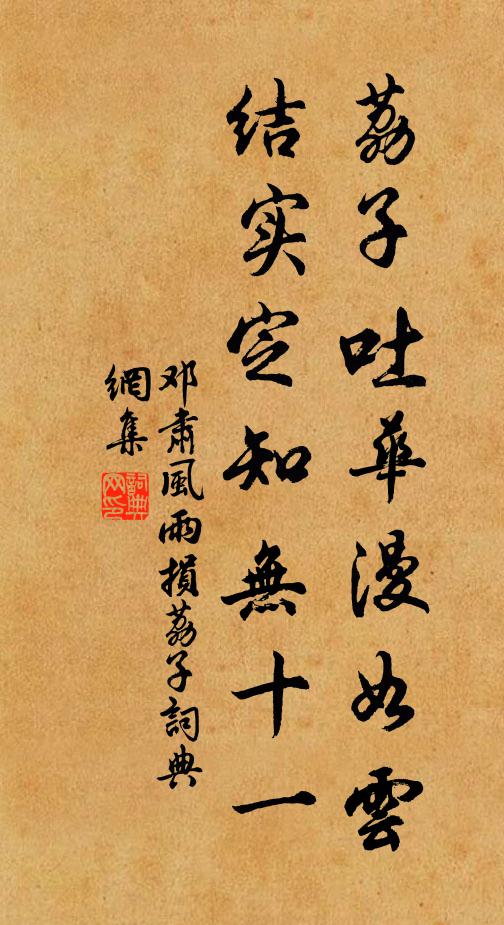 荔子吐華漫如雲
结实定知無十一
邓肃風雨損荔子詞典
網集
詞典
网印